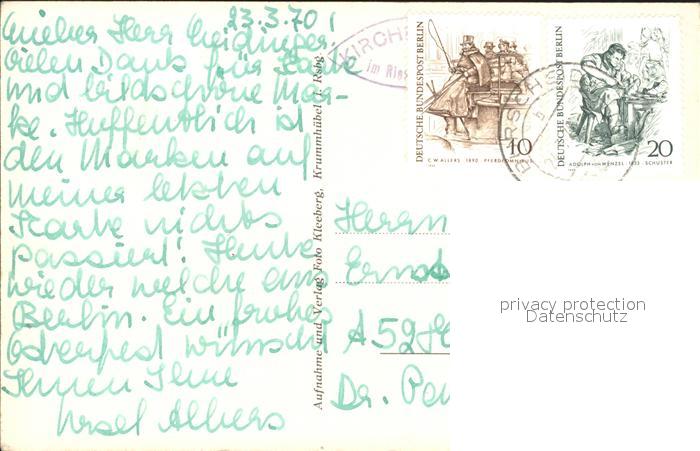 23.3.70
Lieber Herr Meidinger,
vielen Dank für Karte
und bildschöne Mar-
ke. Hoffentlich ist
den Marken auf
meiner letzten
Karte nichts
passiert! Heute
wieder welche aus
Berlin. Ein frohes
Osterfest wünscht
Ihnen Ihre
Ursel Albers
Aufnahme und Verlag Foto Kleeberg, Krummhübel i. Rsgb.
KIRCH
im Ries
DEUTSCHE BUNDESPOST BERLIN
10
C.W. ALLERS 1890 PFERDEOMNIBUS
DEUTSCHE BUNDESPOST BERLIN
20
ADOLPH VON MENZEL · 1833 · SCHUSTER
Herrn
Ernst
A 52
Dr.
privacy protection
Datenschutz